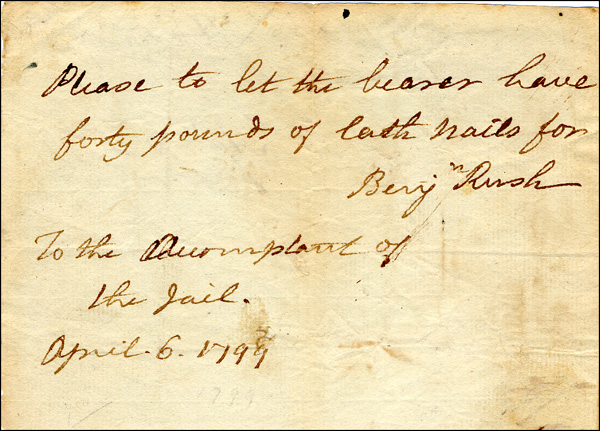 Please to let the bearer have
forty pounds of lath nails for
Benjn Rush
To the Accomptant of
the Jail.
April. 6. 1799